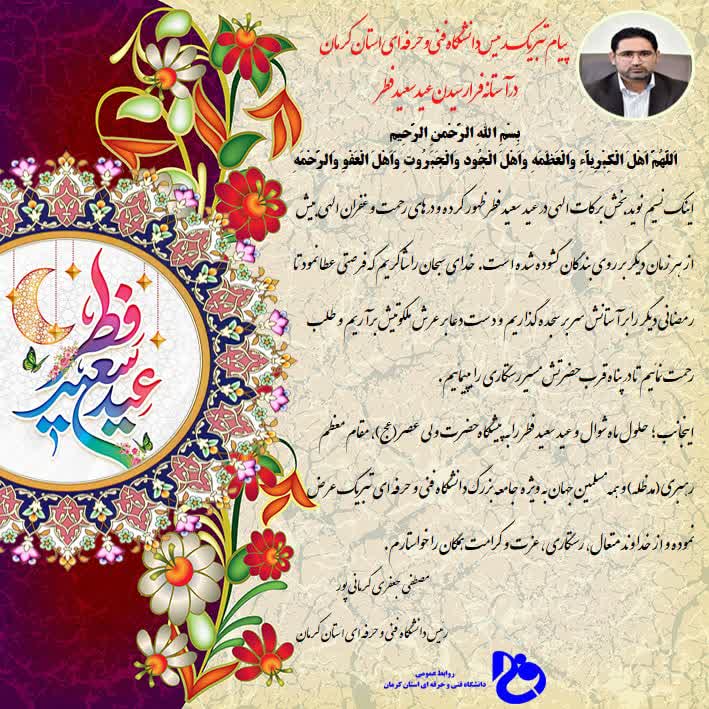 پیام تبریک رئیس دانشگاه فنی و حرفه ای استان کرمان
در آستانه فرا رسیدن عید سعید فطر
بِسْمِ اللهِ الرَّحْمنِ الرَّحیمِ
اَللّهُمَّ اَهْلَ الْکِبْرِیاَّءِ وَالْعَظَمَهِ وَاَهْلَ الْجُودِ وَالْجَبَرُوتِ وَاَهْلَ الْعَفْوِ وَالرَّحْمَهِ
اینک نسیم نوید بخش برکات الهی در عید سعید فطر ظهور کرده و درهای رحمت و غفران الهی بیش
از هر زمان دیگر بر روی بندگان گشوده شده است. خدای سبحان را شاکریم که فرصتی عطا نمود تا
رمضانی دیگر را بر آستانش سر بر سجده گذاریم و دست دعا بر عرش ملکوتیش برآریم و طلب
رحمت نمائیم تا در پناه قرب حضرتش مسیر رستگاری را بپیماییم.
اینجانب؛ حلول ماه شوال و عید سعید فطر را به پیشگاه حضرت ولی عصر(عج)، مقام معظم
رهبری(مدظله)و همه مسلمین جهان به ویژه جامعه بزرگ دانشگاه فنی و حرفه ای تبریک عرض
نموده و از خداوند متعال، رستگاری، عزت و کرامت همگان را خواستارم.
مصطفی جعفری کرمانی پور
رئیس دانشگاه فنی و حرفه ای استان کرمان
عید سعید فطر
روابط عمومی
دانشگاه فنی و حرفه ای استان کرمان